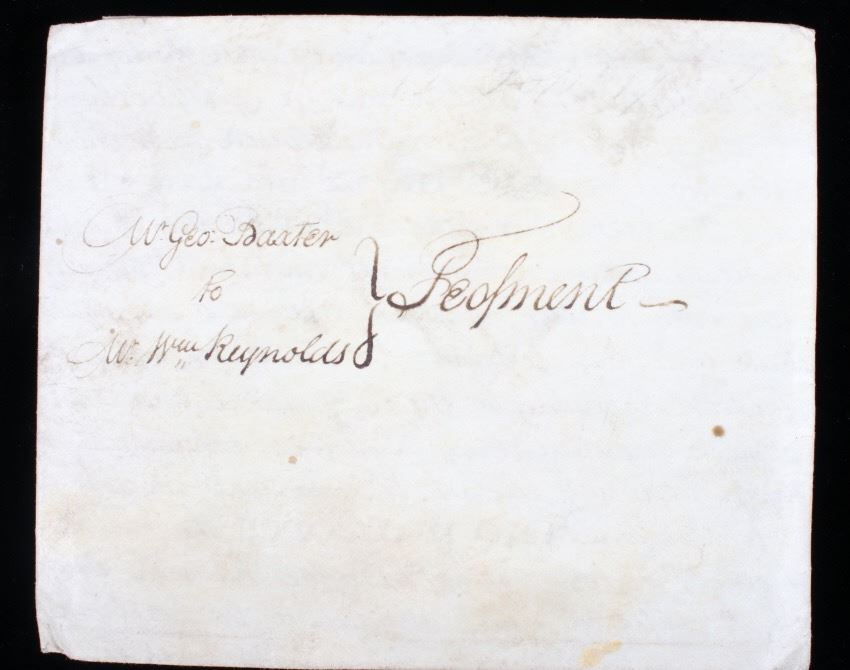 Mr. Geo: Baxter
to
Mr. Wm Reynolds
} Feofment